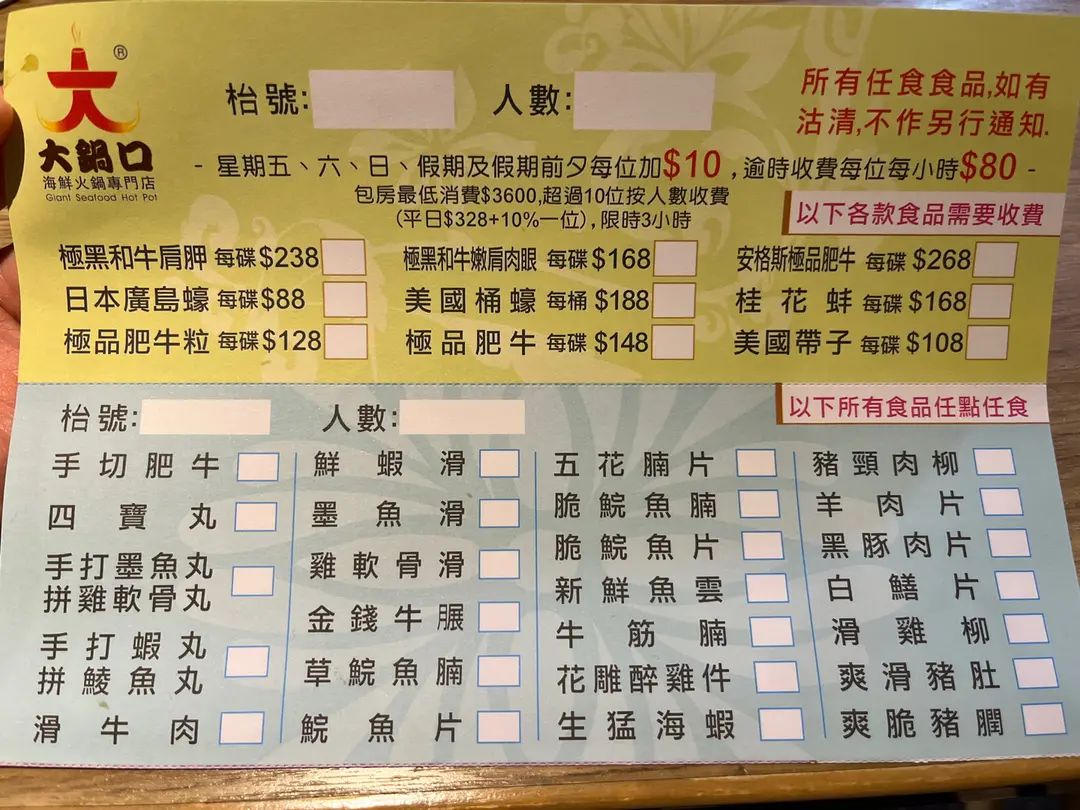 ®
大
大鍋口
海鮮火鍋專門店
Giant Seafood Hot Pot
枱號: 人數:
所有任食食品,如有
沽清,不作另行通知.
- 星期五、六、日、假期及假期前夕每位加$10 ,逾時收費每位每小時$80 -
包房最低消費$3600,超過10位按人數收費
(平日$328+10%一位),限時3小時
以下各款食品需要收費
極黑和牛肩胛 每碟 $238 極黑和牛嫩肩肉眼 每碟 $168 安格斯極品肥牛 每碟 $268
日本廣島蠔 每碟 $88 美國桶蠔 每桶 $188 桂花蚌 每碟 $168
極品肥牛粒 每碟 $128 極品肥牛 每碟 $148 美國帶子 每碟 $108
枱號: 人數:
以下所有食品任點任食
手切肥牛
四寶丸
手打墨魚丸
拼雞軟骨丸
手打蝦丸
拼鯪魚丸
滑牛肉
鮮蝦滑
墨魚滑
雞軟骨滑
金錢牛𦟌
草鯇魚腩
鯇魚片
五花腩片
脆鯇魚腩
脆鯇魚片
新鮮魚雲
牛筋腩
花雕醉雞件
生猛海蝦
豬頸肉柳
羊肉片
黑豚肉片
白鱔片
滑雞柳
爽滑豬肚
爽脆豬膶